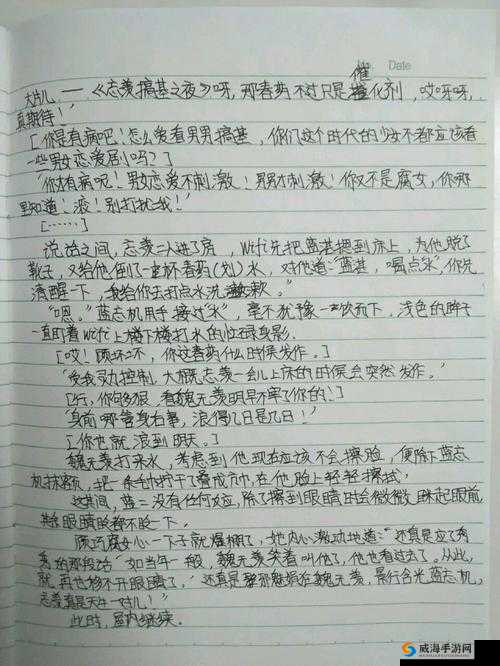 No.  Date
大片儿——《忘羡搞基之夜》呀，那春药不过只是催化剂，哎呀呀，
真期待！
[你是有病吧！怎么爱看男男搞基，你们这个时代的少女不都应该看
一些男女恋爱剧小吗？]
“你才有病呢！男女恋爱不刺激！男男才刺激！你又不是腐女，你哪
里知道！滚！别打扰我！”
[……]
说话之间，忘羡二人进了房，wifi先把蓝湛扶到床上，为他脱了
靴子，又给他倒了一杯春药(划)水，对他道：“蓝湛，喝点水，你先
清醒一下，我给你去打点水洗漱。”
“嗯。”蓝忘机用手接过“水”，毫不犹豫一饮而下，浅色的眸子
一直盯着wifi上楼下楼打水的忙碌身影。
[哎！顾坏水，你这春药什么时候发作。]
“受我灵力控制，大概忘羡一会儿上床的时候会突然发作。”
[行，你够狠，看魏无羡明早不宰了你的！]
“身前哪管身后事，浪得几日是几日！”
[你也就浪到明天。]
魏无羡打来水，考虑到他现在应该不会擦脸，便除下蓝忘
机抹额，把一条布巾打干了叠成方巾，在他脸上轻轻擦拭，
这其间，蓝二没有任何反应，除了擦到眼睛时会微微眯起眼前，
其余眼睛眨都不眨一下。
腐女心一下子就爆棚了，她内心激动地道：“还真是应了秀
秀的那段话‘如当年一般，魏无羡笑着叫他了，他也看过去了。从此，
就再也移不开眼睛了。’还真是磬那魅娟在魏无羡，景行含光蓝忘机，
忘羡真是天生一对儿！”
此时，屋内继续。
威海手游网